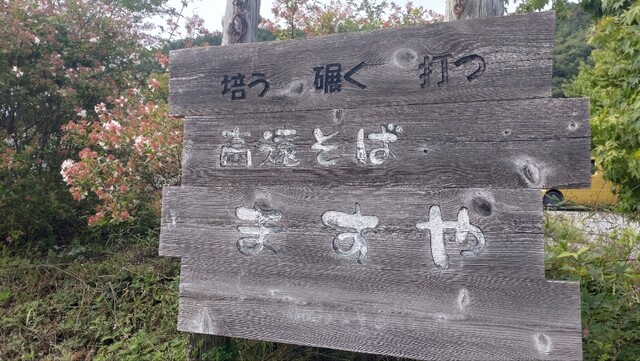 培う 碾く 打つ
高遠そば
ますや